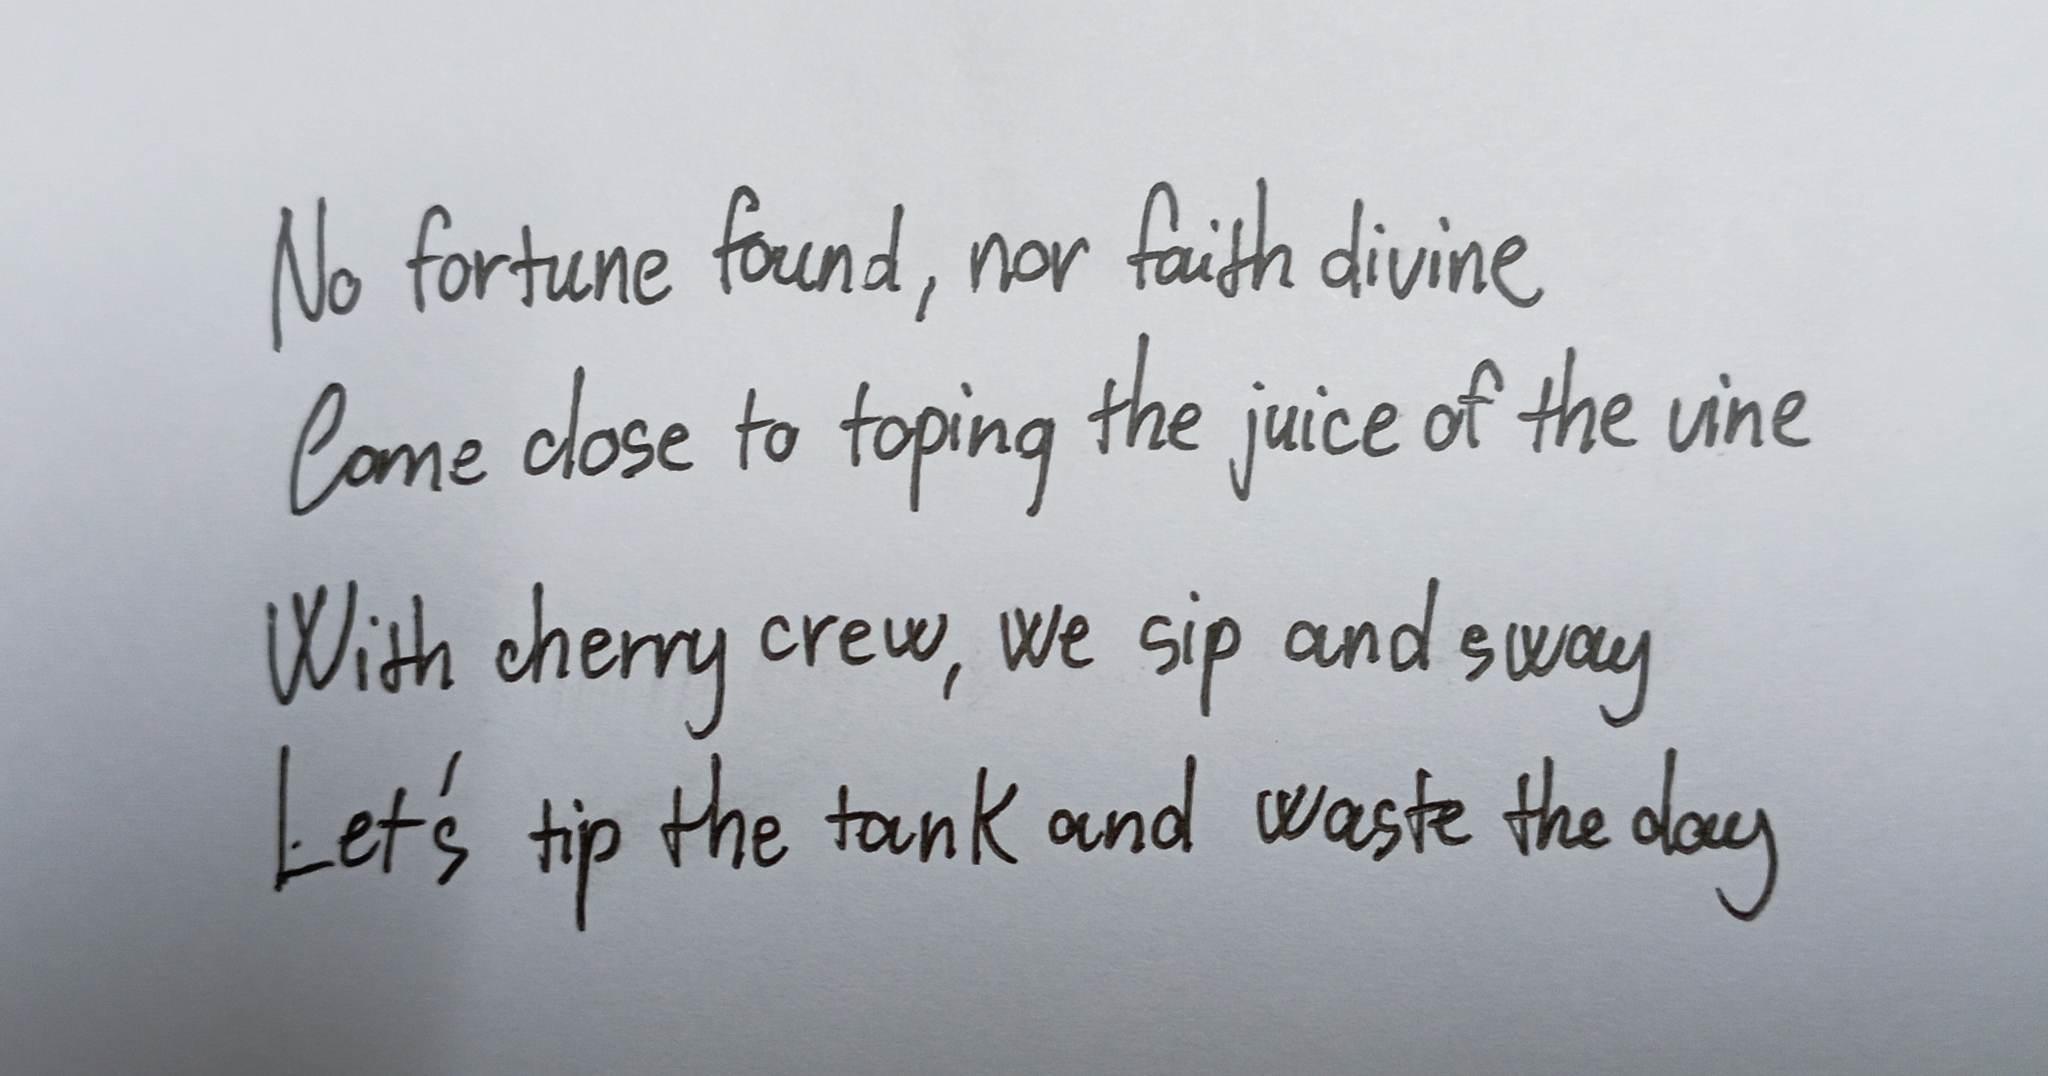 No fortune found, nor faith divine
Come close to toping the juice of the vine
With cherry crew, we sip and sway
Let's tip the tank and waste the day